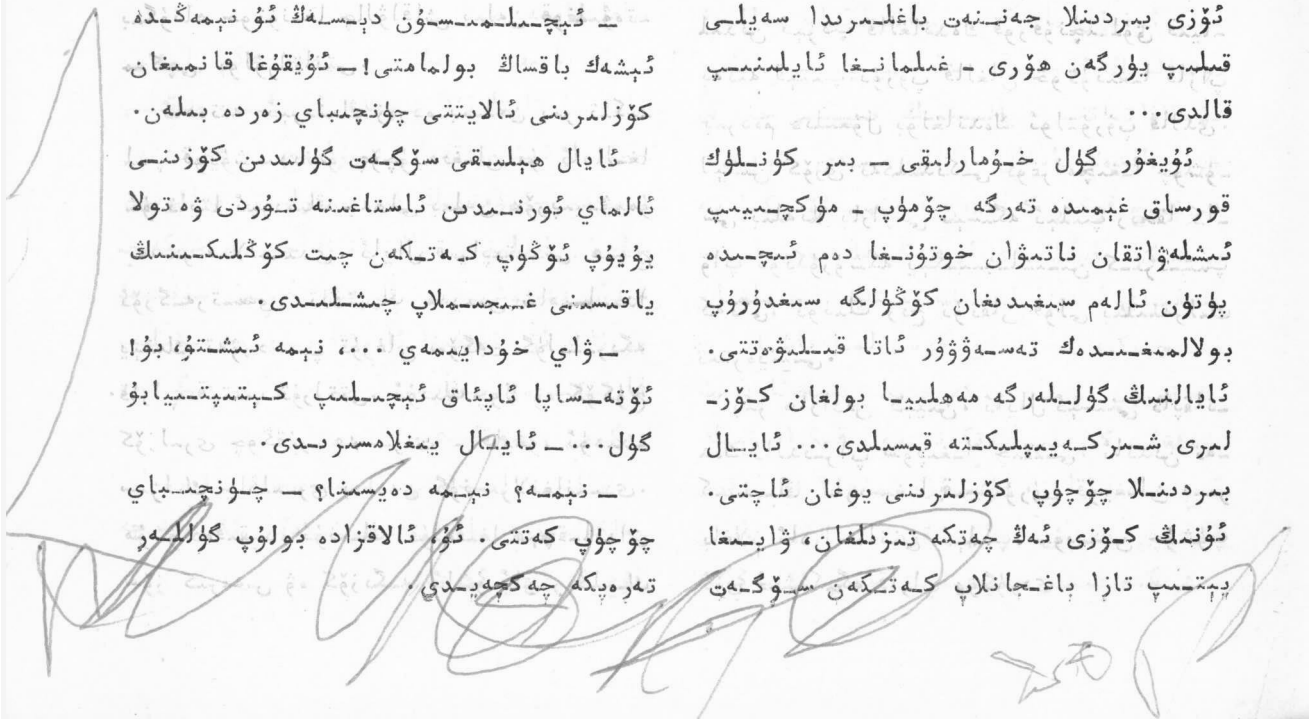 ئۆزى بىردىنلا جەننەت باغلىرىدا سەيلى
قىلىپ يۈرگەن ھۆرى - غىلمانىغا ئايلىنىپ
قالدى...
ئۇيغۇر گۈل خۇمارلىقى — بىر كۈنلۈك
قورساق غېمىدە تەرگە چۆمۈپ - مۈكچىيىپ
ئىشلەۋاتقان ناتىۋان خوتۇنغا دەم ئىچىدە
پۈتۈن ئالەم سىغىدىغان كۆڭۈلگە سىغدۇرۇپ
بولالمىغىدەك تەسەۋۋۇر ئاتا قىلىۋەتتى.
ئايالنىڭ گۈللەرگە مەھلىيا بولغان كۆز-
لىرى شىركەيىپلىكتە قىسىلدى... ئايال
بىردىنلا چۆچۈپ كۆزلىرىنى يوغان ئاچتى.
ئۇنىڭ كۆزى ئەڭ چەتكە تىزىلغان، ۋايىغا
يېتىپ تازا باغجانلاپ كەتكەن سۆگەت
— ئېچىلمىسۇن دېسەڭ ئۇ نېمەڭدە
ئېشەك باقساڭ بولمامتى! — ئۇيقۇغا قانمىغان
كۆزلىرىنى ئالايتتى چۈنچىباي زەردە بىلەن.
ئايال ھېلىقى سۆگەت گۈلىدىن كۆزىنى
ئالماي ئورنىدىن ئاستاغىنە تۇردى ۋە تولا
يۇيۇپ ئۆڭۈپ كەتكەن چىت كۆڭلىكىنىڭ
ياقىسىنى غىجىملاپ چىشلىدى.
— ۋاي خۇدايىمەي ...، نېمە ئىشتۇ، بۇ!
ئۆتە - ساپا ئاپئاق ئېچىلىپ كېتىپتىيابۇ
گۈل... — ئايال يىغلامسىرىدى.
— نېمە؟ نېمە دەيسىنا؟ — چۈنچىباي
چۆچۈپ كەتتى. ئۇ، ئالاقزادە بولۇپ گۈللەر
تەرەپكە چەكچەيدى.